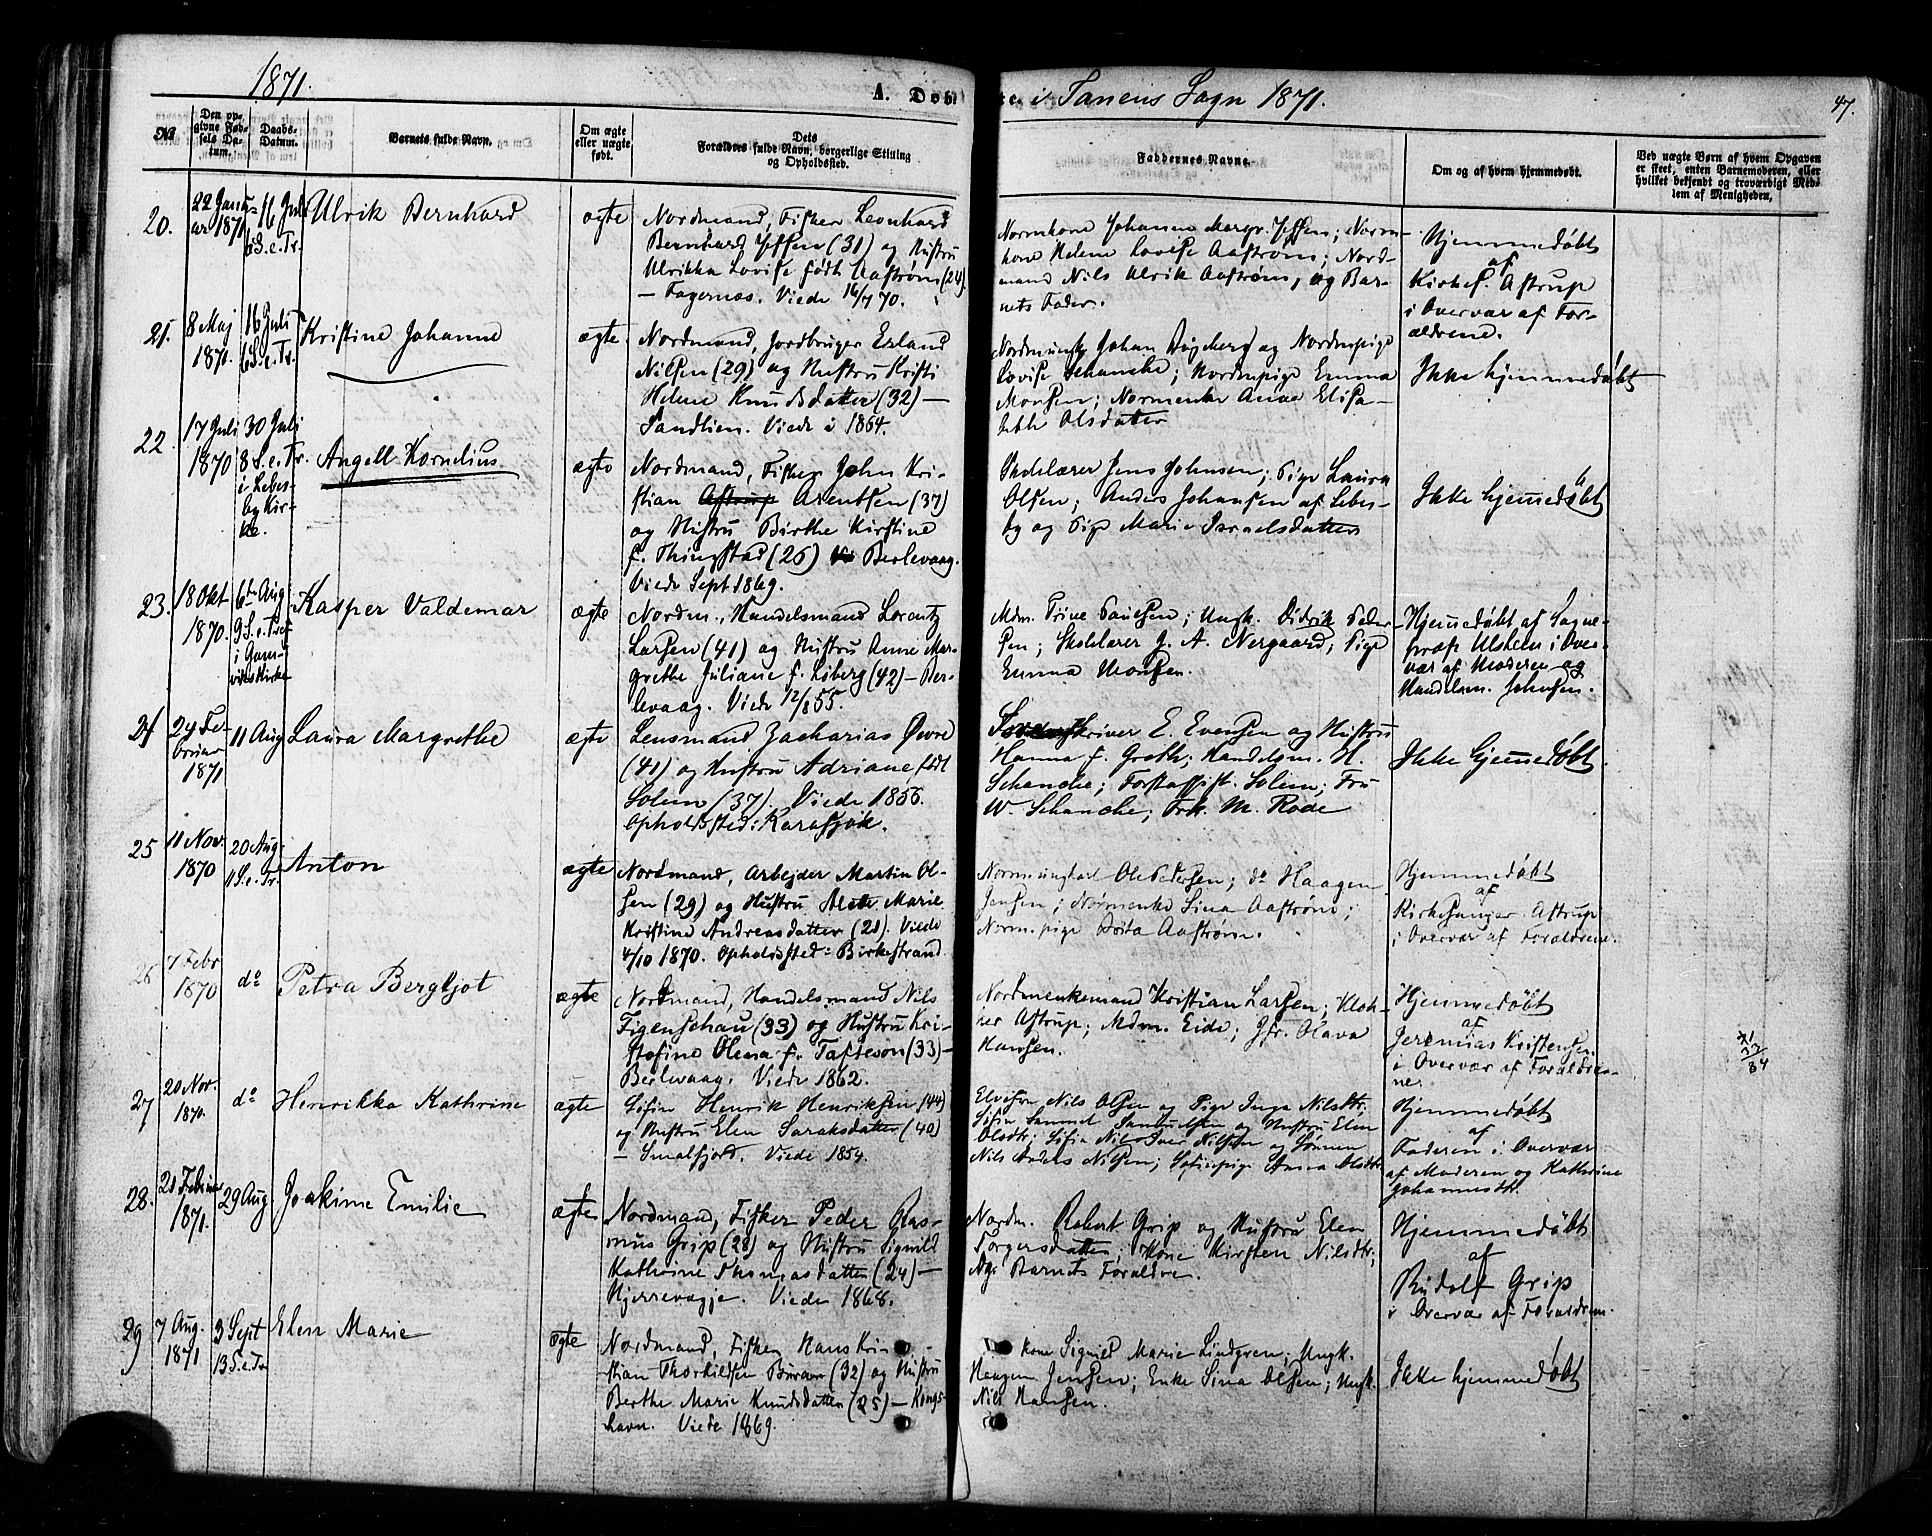 1871.
A. Døbte i Tanens Sogn 1871.
47.
No
Den opgivne Fødsels Datum.
Daabs-Datum.
Barnets fulde Navn.
Om ægte eller uægte født.
Dets Forældres fulde Navn, borgerlige Stilling og Opholdssted.
Faddernes Navne.
Om og af hvem hjemmedøbt.
Ved uægte Børn af hvem Opgaven er skeet, enten Barnemoderen, eller hvilket bekjendt og troværdigt Medlem af Menigheden.
20.
22 Janu-
ar 1871
16 Juli
6 S. e. Tr.
Ulrik Bernhard
ægte
Nordmand, Fisker Leonhard
Bernhard Jessen (31) og Hustru
Ulrikka Lovise født Aastrøm (24)
– Fagernæs. Viede 16/7 70.
Normkone Johanna Margr. Jessen; Norm-
kone Helene Lovise Aastrøm; Nord-
mand Nils Ulrik Aastrøm, og Bar-
nets Fader.
Hjemmedøbt
af
Kirkes. Astrup
i Overvær af For-
ældrene.
21.
8 Maj
1871.
16 Juli
6 S. e. Tr.
Kristine Johanne
ægte
Nordmand, Jordbruger Erland
Nilsen (29) og Hustru Kristi
Helene Knudsdatter (32) –
Sandlien. Viede i 1864.
Johan og Nordmpige
Lovise Schanche; Nordmpige Emma
Monsen; Normenke Anna Elisa-
beth Olsdatter
Ikke hjemmedøbt
22.
17 Juli
1870
30 Juli
8 S. e. Tr.
i Lebes-
by Kir-
ke.
Angell Kornelius
ægte
Nordmand, Fisker John Kri-
stian Astrup Arentsen (37)
og Hustru Birthe Kirstine
f. Thingstad (26) Berlevaag.
Viede Sept 1869.
Skolelærer Jens Johnsen; Pige Laura
Olsen; Anders Johansen af Lebes-
by og Pige Marie Israelsdatter
Ikke hjemmedøbt
23.
18 Okt
1870.
6te Aug
9 S. e. Tref
i Gam-
viks Kirke
Kasper Valdemar
ægte
Nordm., Handelsmand Lorentz
Larsen (41) og Hustru Anne Mar-
grethe Juliane f. Loberg (42) – Ber-
levaag. Viede 12/8 55.
Mdm. Trine Paulsen; Ungk. Didrik Peder-
sen; Skolelærer G. A. Nergaard, Pige
Emma Monsen.
Hjemmedøbt af Sogne-
præst Ulsheim i Over-
vær af Moderen og
Handelsm. Johnsen.
24
24 Fe-
bruar
1871
11 Aug
Laura Margrethe
ægte
Lensmand Zacharias Øvre
(41) og Hustru Adriane født
Solem (37). Viede 1856.
Opholdssted: Karasjok.
Sorenskriver E. Evensen og Hustru
Hanna f. Groth; Handelsm. H.
Schanche; Forstassist. Solem; Fru
W. Schanche; Frk. M. Rode
Ikke hjemmedøbt.
25
11 Nov.
1870
20 Aug
11 S. e. Tr.
Anton
ægte
Nordmand, Arbejder Martin Ol-
sen (29) og Hustru Marie
Kristine Andreasdatter (21). Viede
4/10 1870. Opholdssted: Birkestrand
Normungkarl Ole Pedersen; do Haagen
Jensen; Normenke Sina Aastrøm;
Norm.pige Aastrøm.
Hjemmedøbt
af
Kirkesanger Astrup
i Overvær af Forældrene.
26
7 Febr
1870
do
Petra Bergljot
ægte
Nordmand, Handelsmand Nils
Figenschau (33) og Hustru Kri-
stofine Olena f. Tafteson (33) –
Berlevaag. Viede 1862.
Nordmenkemand Kristian Larsen; Klok-
ker Astrup; Mdm. Eide; Jfr. Olava
Hansen.
Hjemmedøbt
af
Jeremias Kristensen
i Overvær af Forældre-
ne.
27
20 Nov.
1870.
do
Henrikka Kathrine
ægte
Søfin Henrik Henriksen (44)
og Hustru Elen Saraksdatter (40)
– Smalfjord. Viede 1854.
Elvefin Nils Olsen og Pige Inga Nilsdtr.
Søfin Sammel Samuelsen og Hustru Elen
Olsdtr; Søfin Nils Iver Nilsen og Sønnen
Nils Anders Nilsen; Søfinpige Anna Olsdtr
Hjemmedøbt
af
Faderen i Overvær
af Moderen og Kathrine
Johannesdtr.
28.
21 Februar
1871.
29 Aug
Joakime Emilie
ægte
Nordmand, Fisker Peder Ras-
mus Grip (28) og Hustru Signild
Kathrine Thomasdatter (24) –
Hjerrevagje. Viede 1868.
Nordm. Robert Grip og Hustru Elen
Torgersdatter; Kone Kirsten Nilsdtr;
og Barnets Forældre.
Hjemmedøbt
af
Rudolf Grip
i Overvær af Forældrene.
29
7 Aug.
1871
3 Sept
13 S. e. Tr
Elen Marie
ægte
Nordmand, Fisker Hans Kri-
stian Thorkildsen Buran (32) og Hustru
Berthe Marie Knudsdatter (25) – Kongs-
havn. Viede 1869.
kone Signild Marie Lindgren; Ungk.
Haagen Jensen; Enke Sina Olsen; Ungk.
Nils Hansen.
Ikke hjemmedøbt